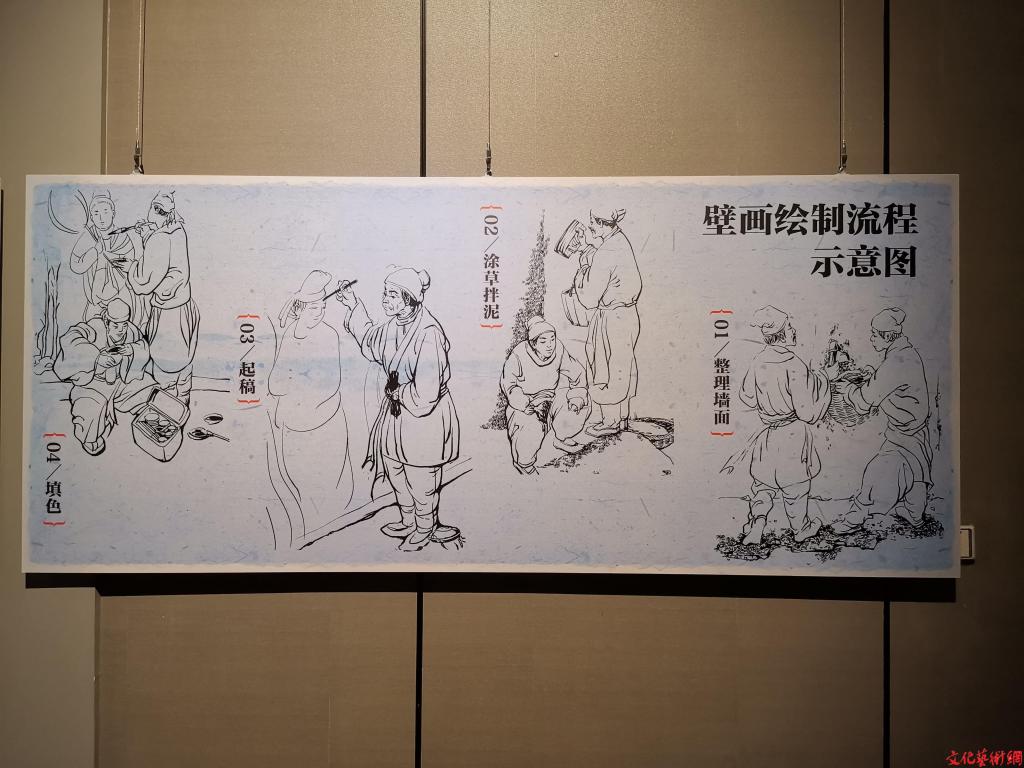 壁画绘制流程
示意图
{01/整理墙面}
{02/涂草拌泥}
{03/起稿}
{04/填色}
文化藝術網